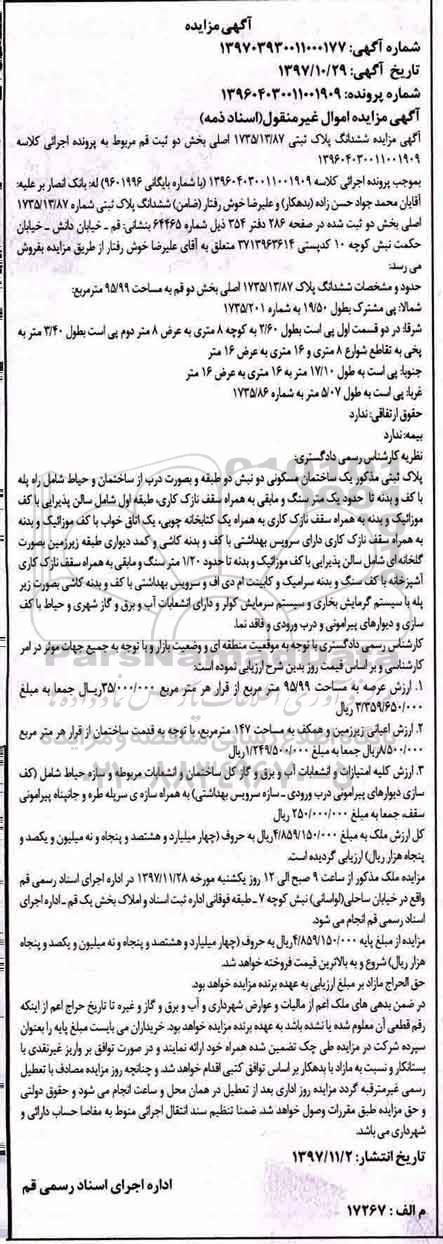 آگهی مزایده
شماره آگهی: ۱۳۹۷۰۳۹۳۰۰۱۱۰۰۰۱۷۷
تاریخ آگهی: ۱۳۹۷/۱۰/۲۹
شماره پرونده: ۱۳۹۶۰۴۰۳۰۰۱۱۰۰۱۹۰۹
آگهی مزایده اموال غیرمنقول(اسناد ذمه)
آگهی مزایده ششدانگ پلاک ثبتی ۱۷۳۵/۱۳/۸۷ اصلی بخش دو ثبت قم مربوط به پرونده اجرائی کلاسه
۱۳۹۶۰۴۰۳۰۰۱۱۰۰۱۹۰۹
بموجب پرونده اجرائی کلاسه ۱۳۹۶۰۴۰۳۰۰۱۱۰۰۱۹۰۹ (با شماره بایگانی ۹۶۰۱۹۹۶) له: بانک انصار بر علیه:
آقایان محمد جواد حسن زاده (بدهکار) و علیرضا خوش رفتار (ضامن) ششدانگ پلاک ثبتی شماره ۱۷۳۵/۱۳/۸۷
اصلی بخش دو ثبت شده در صفحه ۲۸۶ دفتر ۳۵۴ ذیل شماره ۶۴۴۶۵ بنشانی: قم - خیابان دانش - خیابان
حکمت نبش کوچه ۱۰ کدپستی ۳۷۱۳۹۶۳۶۱۴ متعلق به آقای علیرضا خوش رفتار از طریق مزایده بفروش
می رسد:
حدود و مشخصات ششدانگ پلاک ۱۷۳۵/۱۳/۸۷ اصلی بخش دو قم به مساحت ۹۵/۹۹ مترمربع:
شمالا: پی مشترک بطول ۱۹/۵۰ به شماره ۱۷۳۵/۲۰۱
شرقا: در دو قسمت اول پی است بطول ۲/۶۰ به کوچه ۸ متری به عرض ۸ متر دوم پی است بطول ۳/۴۰ متر به
پخی به تقاطع شوارع ۸ متری و ۱۶ متری به عرض ۱۶ متر
جنوبا: پی است به طول ۱۷/۱۰ متر به ۱۶ متری به عرض ۱۶ متر
غربا: پی است به طول ۵/۰۷ متر به شماره ۱۷۳۵/۸۶
حقوق ارتفاقی: ندارد
بیمه: ندارد
نظریه کارشناس رسمی دادگستری:
پلاک ثبتی مذکور یک ساختمان مسکونی دو نبش دو طبقه و بصورت درب از ساختمان و حیاط شامل راه پله
با کف و بدنه تا حدود یک متر سنگ و مابقی به همراه سقف نازک کاری، طبقه اول شامل سالن پذیرایی با کف
موزائیک و بدنه به همراه سقف نازک کاری به همراه یک کتابخانه چوبی، یک اتاق خواب با کف موزائیک و بدنه
به همراه سقف نازک کاری دارای سرویس بهداشتی با کف و بدنه کاشی و کمد دیواری طبقه زیرزمین بصورت
گلخانه ای شامل سالن پذیرایی با کف موزائیک و بدنه تا حدود ۱/۲۰ متر سنگ و مابقی به همراه سقف نازک کاری
آشپزخانه با کف سنگ و بدنه سرامیک و کابینت ام دی اف و سرویس بهداشتی با کف و بدنه کاشی بصورت زیر
پله با سیستم گرمایش بخاری و سیستم سرمایش کولر و دارای انشعابات آب و برق و گاز شهری و حیاط با کف
سازی و دیوارهای پیرامونی و درب ورودی و فاقد نما.
کارشناس رسمی دادگستری با توجه به موقعیت منطقه ای و وضعیت بازار و با توجه به جمیع جهات موثر در امر
کارشناسی و بر اساس قیمت روز بدین شرح ارزیابی نموده است:
۱. ارزش عرصه به مساحت ۹۵/۹۹ متر مربع از قرار هر متر مربع ۳۵/۰۰۰/۰۰۰ریال جمعا به مبلغ
۳/۳۵۹/۶۵۰/۰۰۰ ریال
۲. ارزش اعیانی زیرزمین و همکف به مساحت ۱۴۷ مترمربع، با توجه به قدمت ساختمان از قرار هر متر مربع
۸/۵۰۰/۰۰۰ریال جمعا به مبلغ ۱/۲۴۹/۵۰۰/۰۰۰ریال
۳. ارزش کلیه امتیازات و انشعابات آب و برق و گاز کل ساختمان و انشعابات مربوطه و سازه حیاط شامل (کف
سازی دیوارهای پیرامونی درب ورودی - سازه سرویس بهداشتی) به همراه سازه ی سرپله طره و جانپناه پیرامونی
سقف، جمعا به مبلغ ۲۵۰/۰۰۰/۰۰۰ ریال
کل ارزش ملک به مبلغ ۴/۸۵۹/۱۵۰/۰۰۰ریال به حروف (چهار میلیارد و هشتصد و پنجاه و نه میلیون و یکصد و
پنجاه هزار ریال) ارزیابی گردیده است.
مزایده ملک مذکور از ساعت ۹ صبح الی ۱۲ روز یکشنبه مورخه ۱۳۹۷/۱۱/۲۸ در اداره اجرای اسناد رسمی قم
واقع در خیابان ساحلی(لواسانی) نبش کوچه ۷ - طبقه فوقانی اداره ثبت اسناد و املاک بخش یک قم - اداره اجرای
اسناد رسمی قم انجام می شود.
مزایده از مبلغ پایه ۴/۸۵۹/۱۵۰/۰۰۰ریال به حروف (چهار میلیارد و هشتصد و پنجاه و نه میلیون و یکصد و پنجاه
هزار ریال) شروع و به بالاترین قیمت فروخته خواهد شد.
حق الحراج مازاد بر مبلغ ارزیابی به عهده برنده مزایده خواهد بود.
در ضمن بدهی های ملک اعم از مالیات و عوارض شهرداری و آب و برق و گاز و غیره تا تاریخ حراج اعم از اینکه
رقم قطعی آن معلوم شده یا نشده باشد به عهده برنده مزایده خواهد بود. خریداران می بایست مبلغ پایه را بعنوان
سپرده شرکت در مزایده طی چک تضمین شده همراه خود ارائه نمایند و در صورت توافق بر واریز غیرنقدی با
بستانکار و نسبت به مازاد با بدهکار بر اساس توافق کتبی اقدام خواهد شد. و چنانچه روز مزایده مصادف با تعطیل
رسمی غیرمترقبه گردد مزایده روز اداری بعد از تعطیل در همان محل و ساعت انجام می شود و حقوق دولتی
و حق مزایده طبق مقررات وصول خواهد شد. ضمنا تنظیم سند انتقال اجرائی منوط به مفاصا حساب دارائی و
شهرداری می باشد.
تاریخ انتشار: ۱۳۹۷/۱۱/۲
اداره اجرای اسناد رسمی قم
م الف: ۱۷۲۶۷